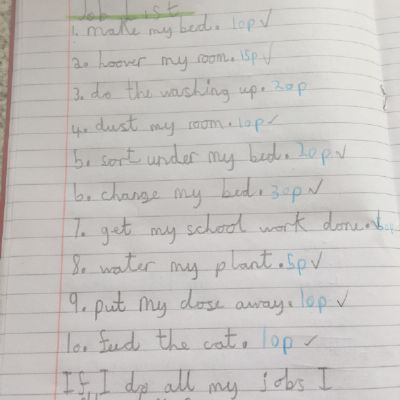 Job List
1. make my bed. 10p ✓
2. hoover my room. 15p ✓
3. do the washing up. 20p
4. dust my room. 10p ✓
5. sort under my bed. 20p ✓
6. change my bed. 30p ✓
7. get my school work done. ✓
8. water my plant. 5p ✓
9. put my close away. 10p ✓
10. feed the cat. 10p ✓
If I do all my jobs I